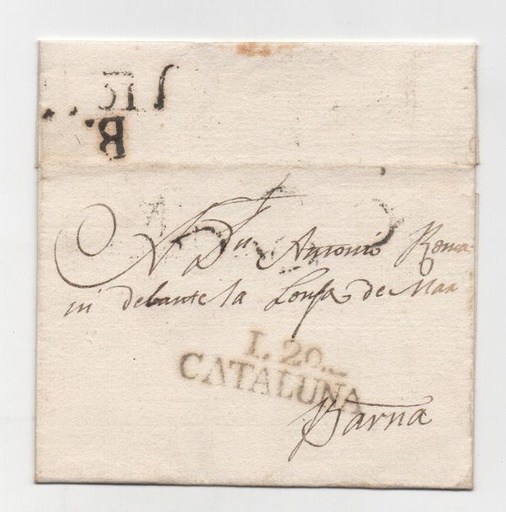 R.
A Dn Antonio Roma
ni debante la Lonja de Mar
L. 20.
CATALUÑA
Barna